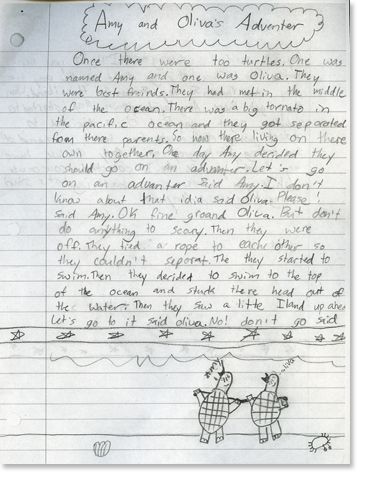 Amy and Oliva's Adventer
Once there were too turtles. One was
named Amy and one was Oliva. They
were best freinds. They had met in the middle
of the ocean. There was a big tornato in
the pacific ocean and they got seperated
from there parents. So now there living on there
own together. One day Amy decided they
should go on an advanter. Let's go
on an advanter said Amy. I don't
know about that idia said Oliva. Please!
said Amy. OK fine groand Oliva. But don't
do anything to scary. Then they were
off. They tied a rope to each other so
they couldn't seperat. The they started to
swim. Then they decided to swim to the top
of the ocean and stuck there head out of
the water. Then they saw a little Iland up
Let's go to it said oliva. No! don't go said
Amy
oliva